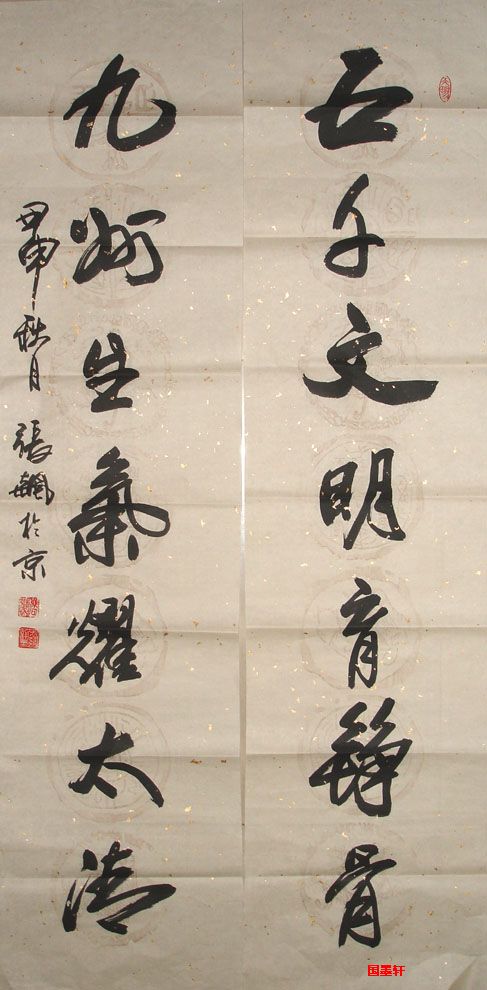 五千文明育錚骨
九州生氣耀太清
甲申秋月張飆於京
国墨轩